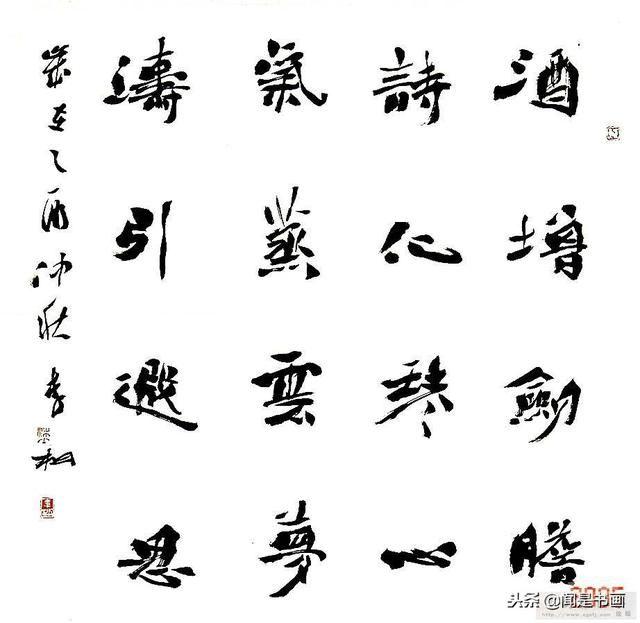 酒增劍膽
詩化琴心
氣蒸雲夢
濤引遐思
歲在乙酉仲秋李
头条 @闻是书画